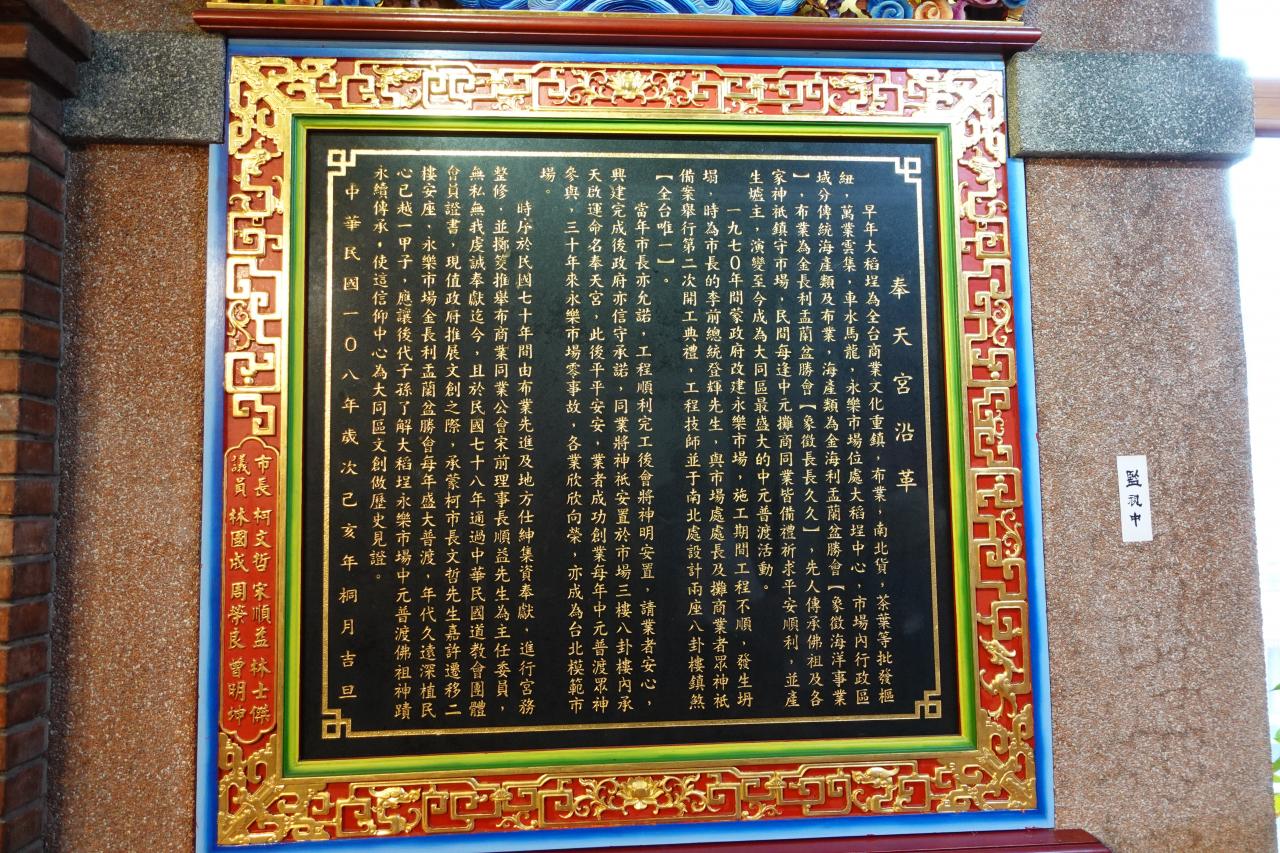 奉天宮沿革
早年大稻埕為全台商業文化重鎮，布業，南北貨，茶葉等批發樞
紐，萬業雲集，車水馬龍，永樂市場位處大稻埕中心，市場內行政區
域分傳統海產類及布業，海產類為金海利盂蘭盆勝會【象徵海洋事業
】，布業為金長利盂蘭盆勝會【象徵長長久久】，先人傳承佛祖及各
家神祇鎮守市場，民間每逢中元攤商同業皆備禮祈求平安順利，並產
生爐主，演變至今成為大同區最盛大的中元普渡活動。
一九七０年間蒙政府改建永樂市場，施工期間工程不順，發生坍
塌，時為市長的李前總統登輝先生，與市場處處長及攤商業者眾神祇
備案舉行第二次開工典禮，工程技師並于南北處設計兩座八卦樓鎮煞
【全台唯一】。
當年市長亦允諾，工程順利完工後會將神明安置，請業者安心，
興建完成後政府亦信守承諾，同業將神祇安置於市場三樓八卦樓內承
天啟運命名奉天宮，此後平平安安，業者成功創業每年中元普渡眾神
參與，三十年來永樂市場零事故，各業欣欣向榮，亦成為台北模範市
場。
時序於民國七十年間由布業先進及地方仕紳集資奉獻，進行宮務
整修，並擲筊推舉布商業同業公會宋前理事長順益先生為主任委員，
無私無我虔誠奉獻迄今，且於民國七十八年通過中華民國道教會團體
會員證書，現值政府推展文創之際，承蒙柯市長文哲先生嘉許遷移二
樓安座，永樂市場金長利盂蘭盆勝會每年盛大普渡，年代久遠深植民
心已越一甲子，應讓後代子孫了解大稻埕永樂市場中元普渡佛祖神蹟
永續傳承，使這信仰中心為大同區文創做歷史見證。
中華民國一０八年歲次己亥年桐月吉旦
市長 柯文哲 宋順益 林士傑
議員 林國成 周榮良 曾明坤
監視中